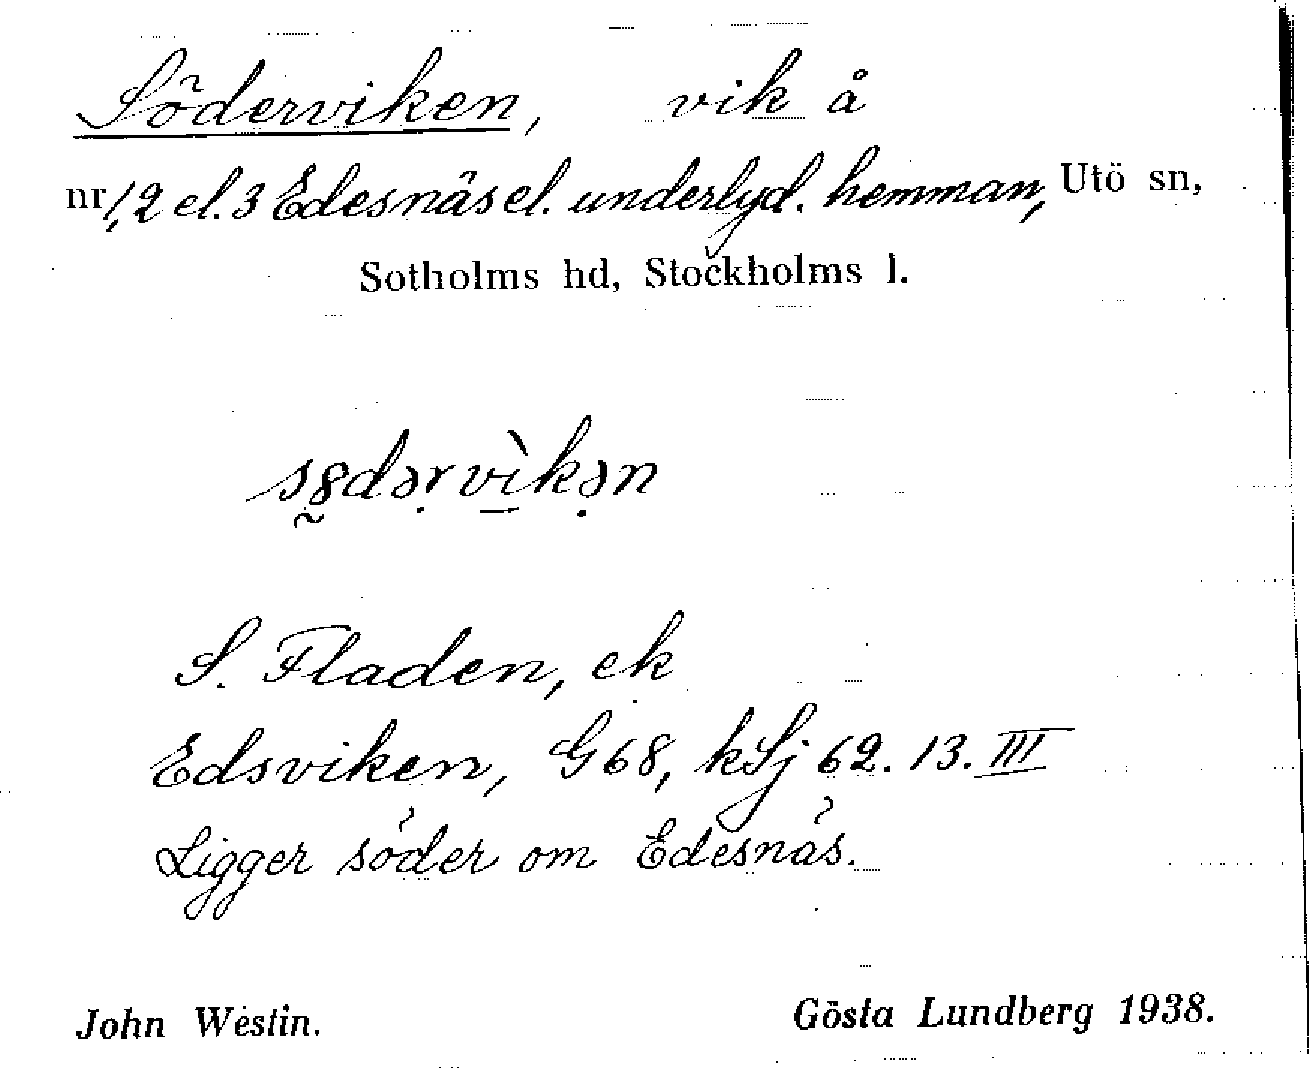 Söderviken, vik å
nr 1, 2 el. 3 Edesnäs el. underlyd. hemman, Utö sn,
Sotholms hd, Stockholms l.
s8̰dər̤vìkə̣n
S. Fladen, ek
Edsviken, G68, kSj 62. 13. III
Ligger söder om Edesnäs.
John Westin. Gösta Lundberg 1938.